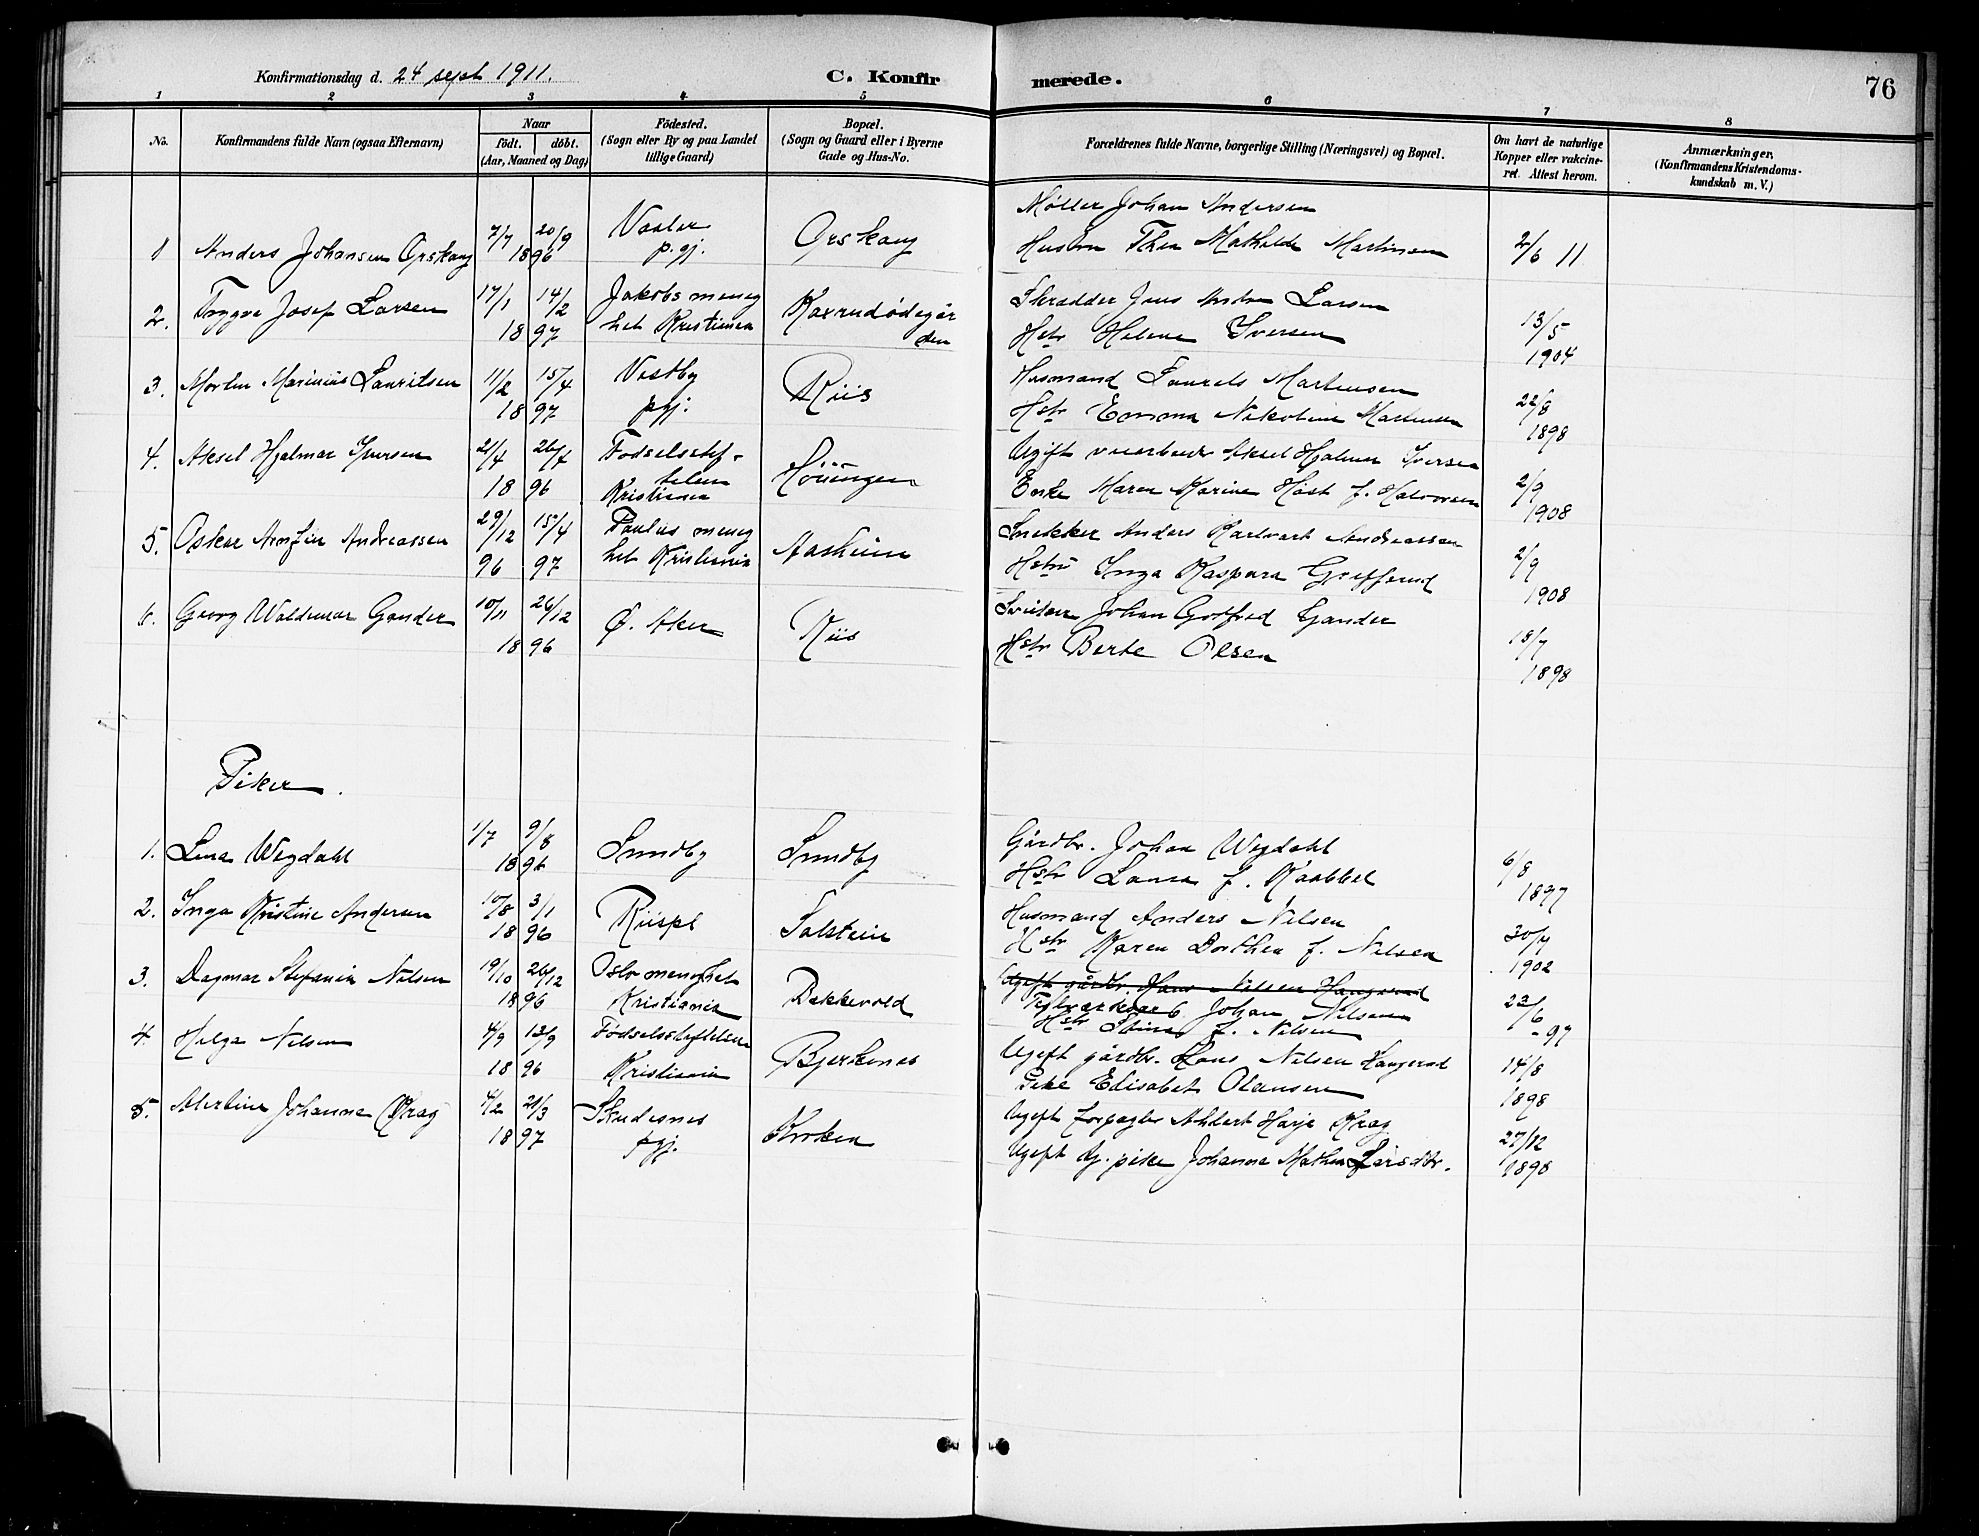 Konfirmationsdag d. 24 sept 1911.
C. Konfirmerede.
76
1 2 3 4 5 6 7 8
No.
Konfirmandens fulde Navn (ogsaa Efternavn)
Naar
födt. döbt.
(Aar, Maaned og Dag)
Födested.
(Sogn eller By og paa Landet
tillige Gaard)
Bopæl.
(Sogn og Gaard eller i Byerne
Gade og Hus-No.
Forældrenes fulde Navne, borgerlige Stilling (Næringsvei) og Bopæl.
Om havt de naturlige
Kopper eller vakcine-
ret. Attest herom.
Anmærkninger.
(Konfirmandens Kristendoms-
kundskab m. V.)
1 Anders Johansen Orskaug 7/7 20/9 1896 Vaaler p.gj. Orskaug
Møller Johan Andersen
Hustru Thea Mathilde Martinsen 2/6 11
2. Trygve Josef Larsen 17/1 14/2 1897 Jakobs menig
het Kristiania
Skrædder Jens Larsen
Hstr Helene Iversen 13/5 1904
3. Martin Marinius Lauritsen 11/2 15/4 1897 Vestby pgj. Riis
Husmand Laurets Martinsen
Hstr Emma Nikoline Martinsen 22/8 1898
4. Aksel Hjalmar Iversen 21/4 26/4 1896 Fødselsstif-
telsen
Kristiania
Ugift Aksel Hjalmar Iversen
Enke Maren Karine Høst f. Halvorsen 2/9 1908
5. Oskar Arnfin Andreassen 29/12 96 15/4 97 Paulus menig
het Kristiania Aasheim
Snekker Anders Andreassen
Hstru Inga Kaspara 2/9 1908
6. Georg Waldemar Gander 10/11 26/12 1896 Ø. Aker Riis
Sveitser Johan Gotfred Gander
Hstr Berte Olsen 18/7 1898
Piker.
1. Lina Wegdahl 1/7 9/8 1896 Sundby Sundby
Gårdbr. Johan Wegdahl
Hstr Laura f. Kaabbel 6/8 1897
2. Inga Kristine Andersen 10/8 3/1 1896 Riispl Solstein
Husmand Anders Nilsen
Hstr Karen Dorthea f. Nilsen 30/7 1902
3. Dagmar Stefania Nilsen 19/10 26/12 1896 Oslo menighet
Kristiania Bakkevold
Ugift gårdbr. Hans Nilsen Haugerud
Teglværksarb. Johan Nilsen
Hstr Stina f. Nilsen 23/6 - 97
4. Helga Nilsen 4/9 13/9 1896 Fødselsstiftelsen
Kristiania Bjerkenes
Ugift gårdbr. Hans Nilsen Haugerud
Pike Elisabet Olausen 14/8 1898
5. Alertine Johanne Krag 4/2 21/3 1897 Skudesnes
pgj. Kroken
Ugift forpagter Ahlert Krag
Ugift tj. pike Johanne Larsdtr. 27/12 1898